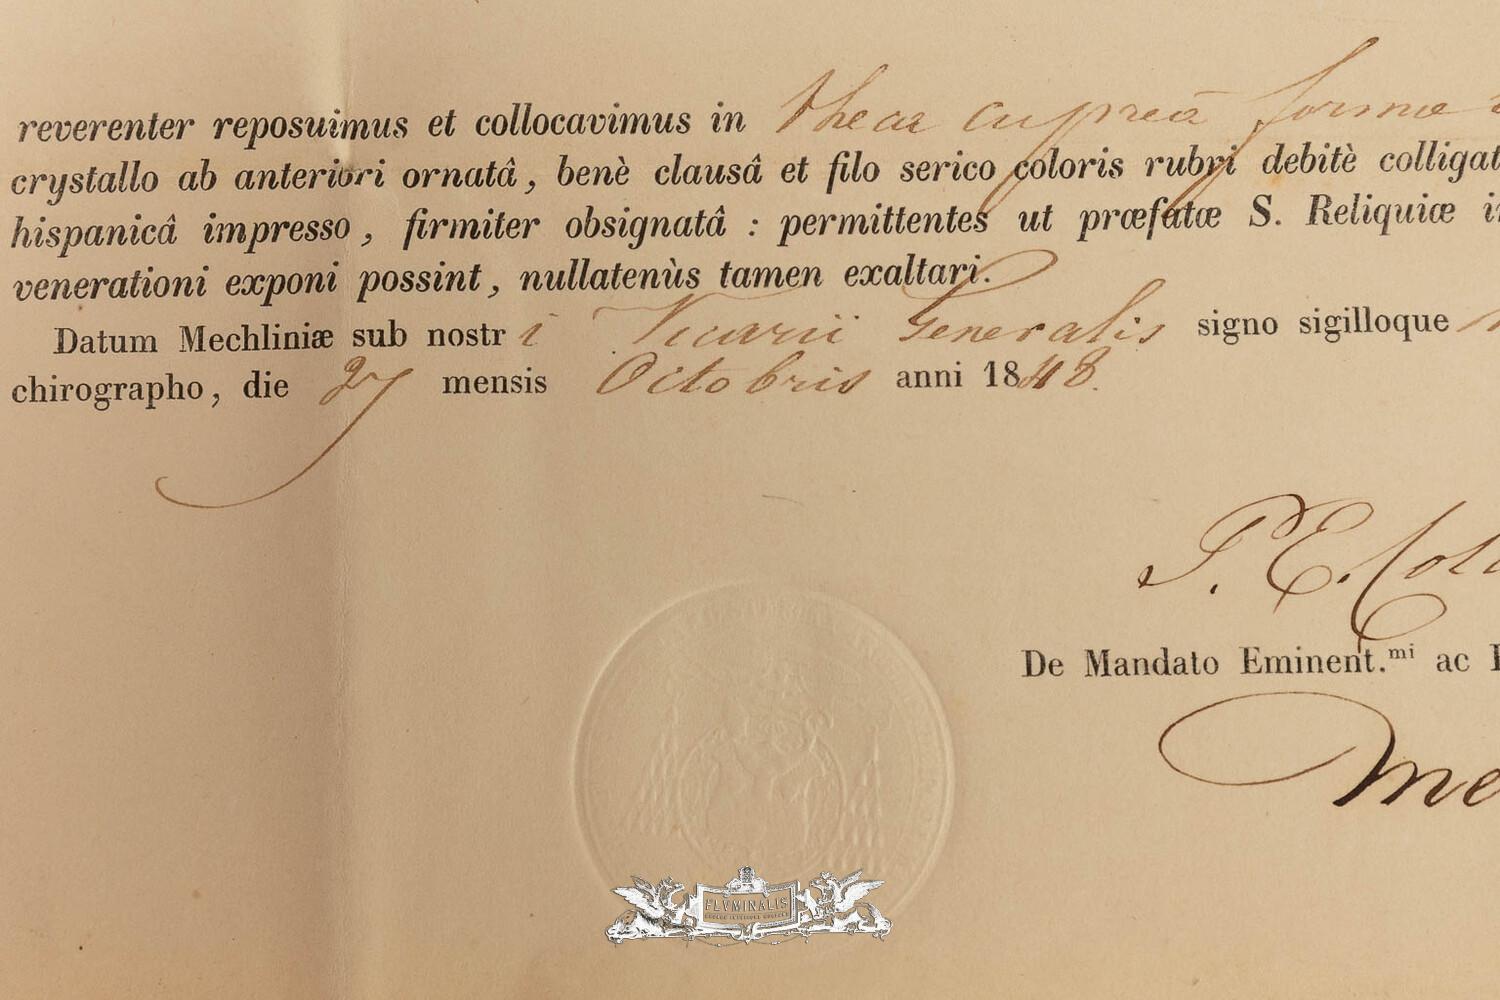 reverenter reposuimus et collocavimus in theca cupreâ formæ
crystallo ab anteriori ornatâ, benè clausâ et filo serico coloris rubri debitè colligat
hispanicâ impresso, firmiter obsignatâ : permittentes ut præfatæ S. Reliquiæ
venerationi exponi possint, nullatenùs tamen exaltari.
Datum Mechliniæ sub nostri Vicarii Generalis signo sigilloque
chirographo, die 27 mensis Octobris anni 1848.
P. E. Col
De Mandato Eminent.mi ac
FLVMINALIS